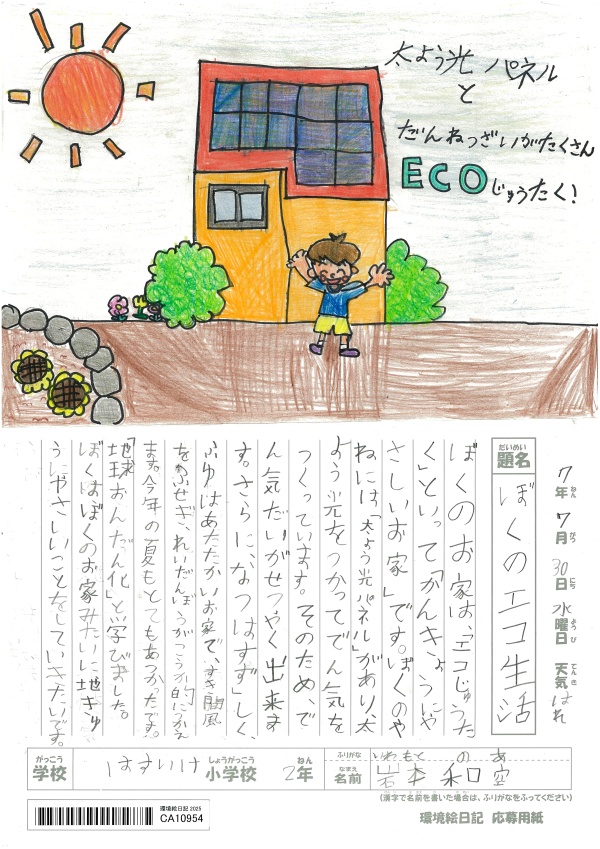 太よう光パネル
と
だんねつざいがたくさん
ECOじゅうたく!
7年7月30日水曜日 天気はれ
ねん がつ にち ようび てんき
だいめい
題名 ぼくのエコ生活
ぼくのお家は、「エコじゅうた
く」といって「かんきょうにや
さしいお家」です。ぼくのや
ねには「太よう光パネル」があり、太
よう光をつかってでん気を
つくっています。そのため、で
ん気だいがせつやく出来ま
す。さらに、なつはすずしく、
ふゆはあたたかいお家で、すき間風
をふせぎ、れいだんぼうがこうか的につかえ
ます。今年の夏もとてもあつかったです。
「地球おんだん化」と学びました。
ぼくはぼくのお家みたいに地きゅ
うにやさしいことをしていきたいです。
がっこう しょうがっこう ねん
学校 はすいけ 小学校 2年
ふりがな いわもと のあ
なまえ
名前 岩本 和空
(漢字で名前を書いた場合は、ふりがなをふってください)
環境絵日記 2025
CA10954
環境絵日記 応募用紙